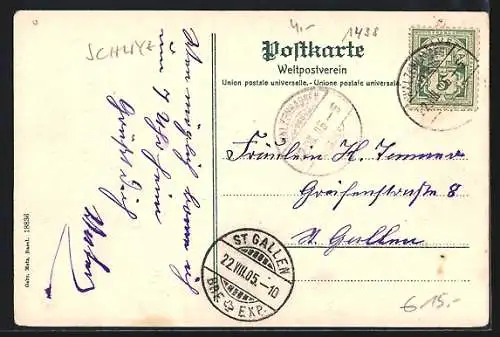 4.-
1438
SCHWYZ
Postkarte
Weltpostverein
Union postale universelle. - Unione postale universale.
5
Wenn möglich komme ich
um 7 Uhr heim
Grüsst Dich
Fräulein H.
Greifenstraße 8
St. Gallen
ST GALLEN
22.VIII.05.-10
BRF. EXP.
18836
6 15.-